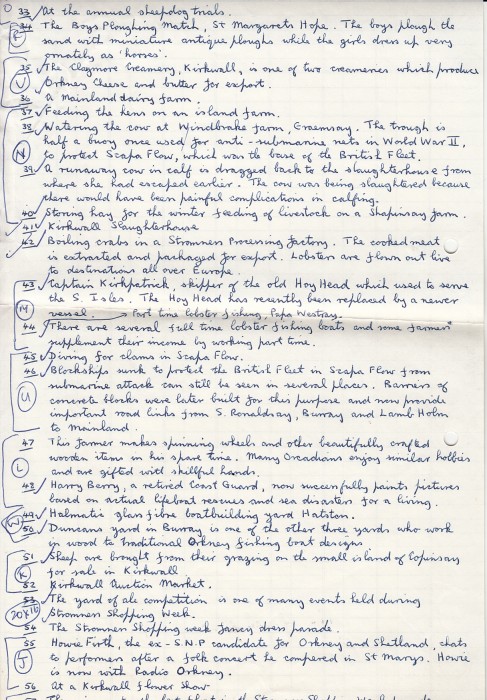 33 At the annual sheepdog trials.
34 The Boys Ploughing Match, St Margarets Hope. The boys plough the
sand with miniature antique ploughs while the girls dress up very
ornately as 'horses'.
35 The Claymore Creamery, Kirkwall, is one of two creameries which produce
Orkney Cheese and butter for export.
V
36 A Mainland dairy farm.
37 Feeding the hens on an island farm.
38 Watering the cow at Windbrake farm, Graemsay. The trough is
half a buoy once used for anti-submarine nets in World War II,
N
to protect Scapa Flow, which was the base of the British Fleet.
39 A runaway cow in calf is dragged back to the slaughterhouse from
where she had escaped earlier. The cow was being slaughtered because
there would have been painful complications in calfing.
40 Storing hay for the winter feeding of livestock on a Shapinsay farm.
41 Kirkwall Slaughterhouse
42 Boiling crabs in a Stromness Processing factory. The cooked meat
is extracted and packaged for export. Lobsters are flown out live
to destinations all over Europe.
43 Captain Kirkpatrick, skipper of the old Hoy Head which used to serve
the S. Isles. The Hoy Head has recently been replaced by a newer
M
vessel. → Part time lobster fishing, Papa Westray.
44 There are several full time lobster fishing boats and some farmers
supplement their income by working part time.
45 Diving for clams in Scapa Flow.
46 Blockships sunk to protect the British Fleet in Scapa Flow from
submarine attack can still be seen in several places. Barriers of
U
concrete blocks were later built for this purpose and now provide
important road links from S. Ronaldsay, Burray and Lamb Holm
to Mainland.
47 This farmer makes spinning wheels and other beautifully crafted
wooden items in his spare time. Many Orcadians enjoy similar hobbies
L
and are gifted with skillful hands.
48 Harry Berry, a retired Coast Guard, now successfully paints pictures
based on actual lifeboat rescues and sea disasters for a living.
49 Halmatic glass fibre boatbuilding yard Hatston.
W
50 Duncans yard in Burray is one of the other three yards who work
in wood to traditional Orkney fishing boat designs
51 Sheep are brought from their grazing on the small island of Copinsay
K
for sale in Kirkwall
52 Kirkwall Auction Market.
53 The yard of ale competition is one of many events held during
20X16
Stromness Shopping Week.
54 The Stromness Shopping week fancy dress parade.
55 Howie Firth, the ex-S.N.P candidate for Orkney and Shetland, chats
J
to performers after a folk concert he compered in St Marys. Howie
is now with Radio Orkney.
56 At a Kirkwall flower show